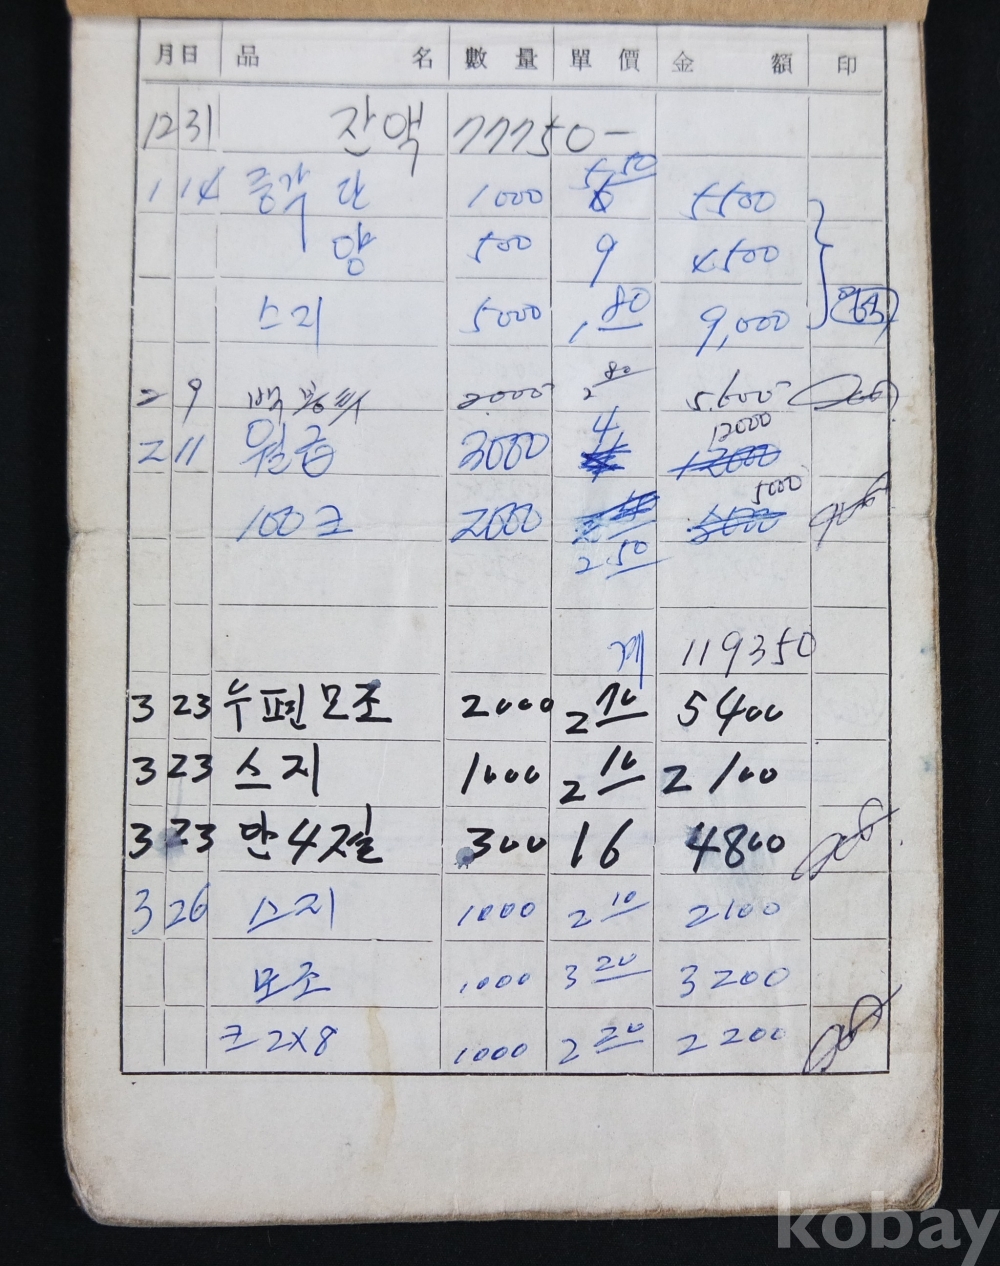 月日 品名 數量 單價 金額 印
12 31 잔액 77750-
1 14 중각 단 1000 5.50 5500
양 500 9 4500
스지 5000 1.80 9,000
2 9 백봉투 2000 2.80 5.600-
2 11 월급 3000 4 12000
100 크 2000 2.50 5000
계 119350
3 23 우편 모조 2000 2 70 5400
3 23 스지 1000 2 10 2100
3 23 만 4절 300 16 4800
3 26 스지 1000 2 10 2100
모조 1000 3 20 3200
크 2x8 1000 2 20 2200
kobay